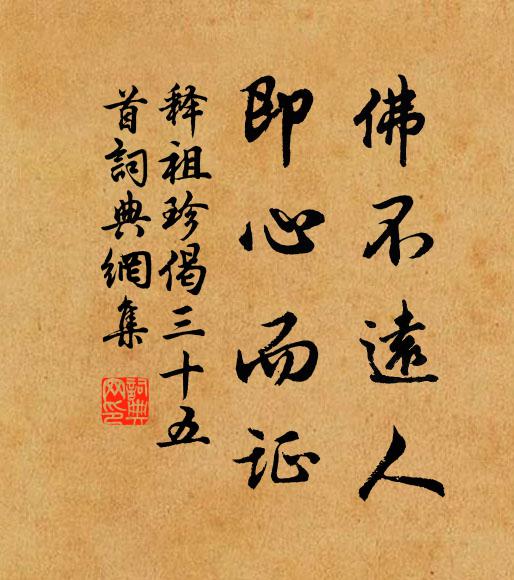 佛不遠人
即心而证
释祖珍偈三十五
首詞典網集
詞典网印